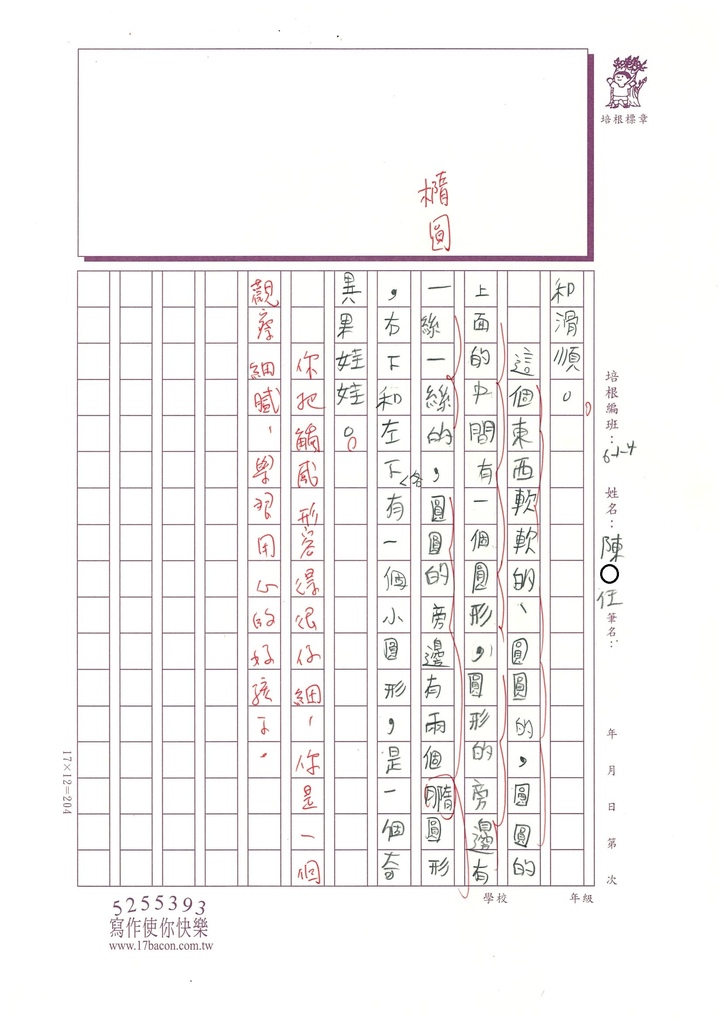 培根標章
橢
圓
培根編班：6-1-4 姓名：陳〇任 筆名：
年 月 日 第 次
和滑順。
這個東西軟軟的、圓圓的，圓圓的
上面的中間有一個圓形，圓形的旁邊有
一絲一絲的，圓圓的旁邊有兩個橢圓形
，右下和左下各有一個小圓形，是一個奇
異果娃娃。
你把觸感形容得很仔細，你是一個
觀察細膩、學習用心的好孩子。
17×12=204
學校 年級
5255393
寫作使你快樂
www.17bacon.com.tw